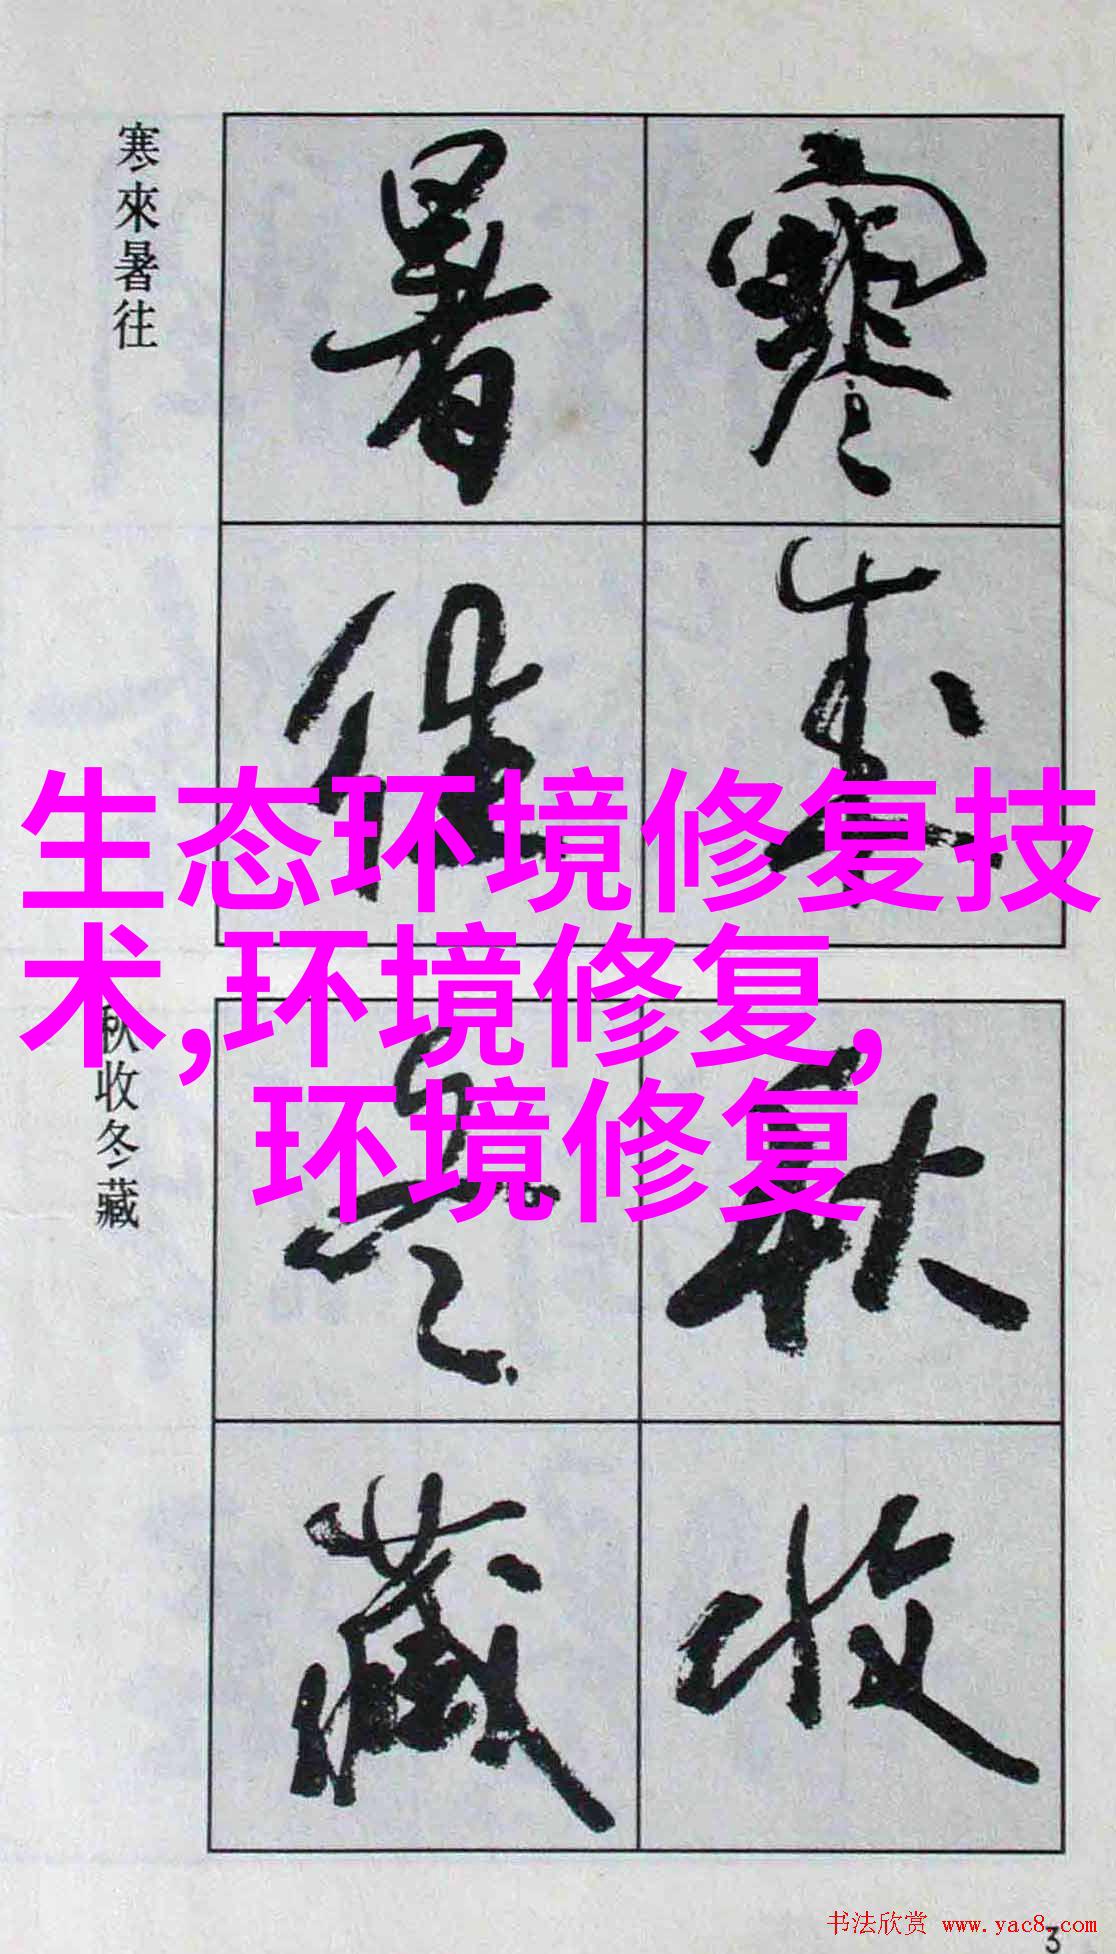 寒來暑往
寒來暑往
生态环境修复技
术,环境修复,
环境修复
秋收冬藏
秋收冬藏
书法欣赏 www.yac8.com
3